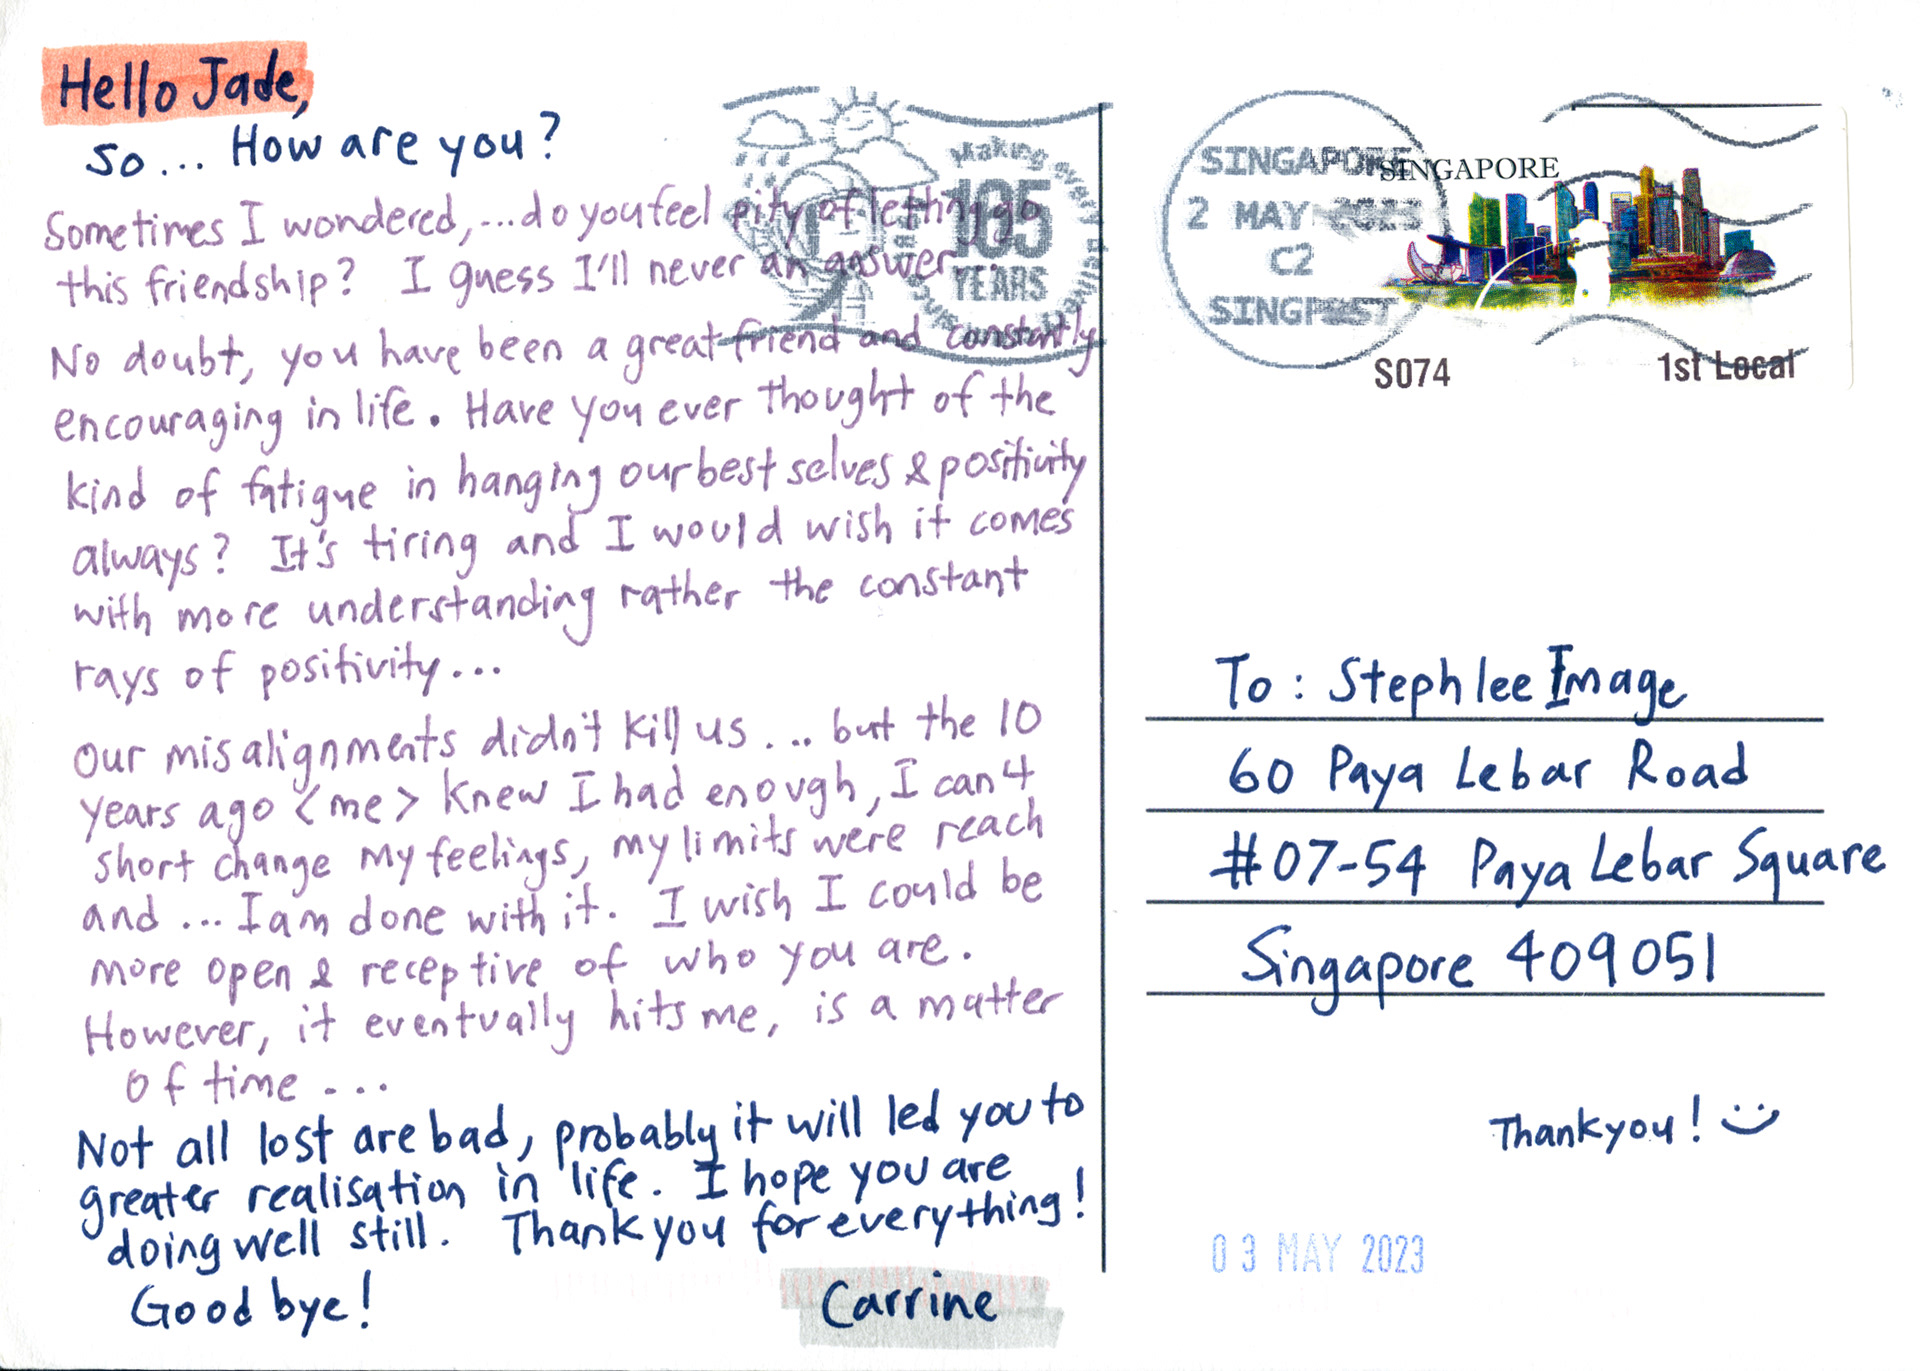 Hello Jade,
so... How are you?
Sometimes I wondered,...do you feel pity of letting go
this friendship? I guess I'll never an answer
No doubt, you have been a great friend and constantly
encouraging in life. Have you ever thought of the
kind of fatigue in hanging our best selves & positivity
always? It's tiring and I would wish it comes
with more understanding rather the constant
rays of positivity...
Our misalignments didn't kill us... but the 10
years ago <me> knew I had enough, I can't
short change my feelings, my limits were reach
and ... I am done with it. I wish I could be
more open & receptive of who you are.
However, it eventually hits me, is a matter
of time ...
Not all lost are bad, probably it will led you to
greater realisation in life. I hope you are
doing well still. Thank you for everything!
Good bye!
Carrine
Making every
185
YEARS
SINGAPORE
2 MAY 2023
C2
SINGPOST
SINGAPORE
S074
1st Local
To: Steph lee Image
60 Paya Lebar Road
#07-54 Paya Lebar Square
Singapore 409051
Thankyou!
03 MAY 2023